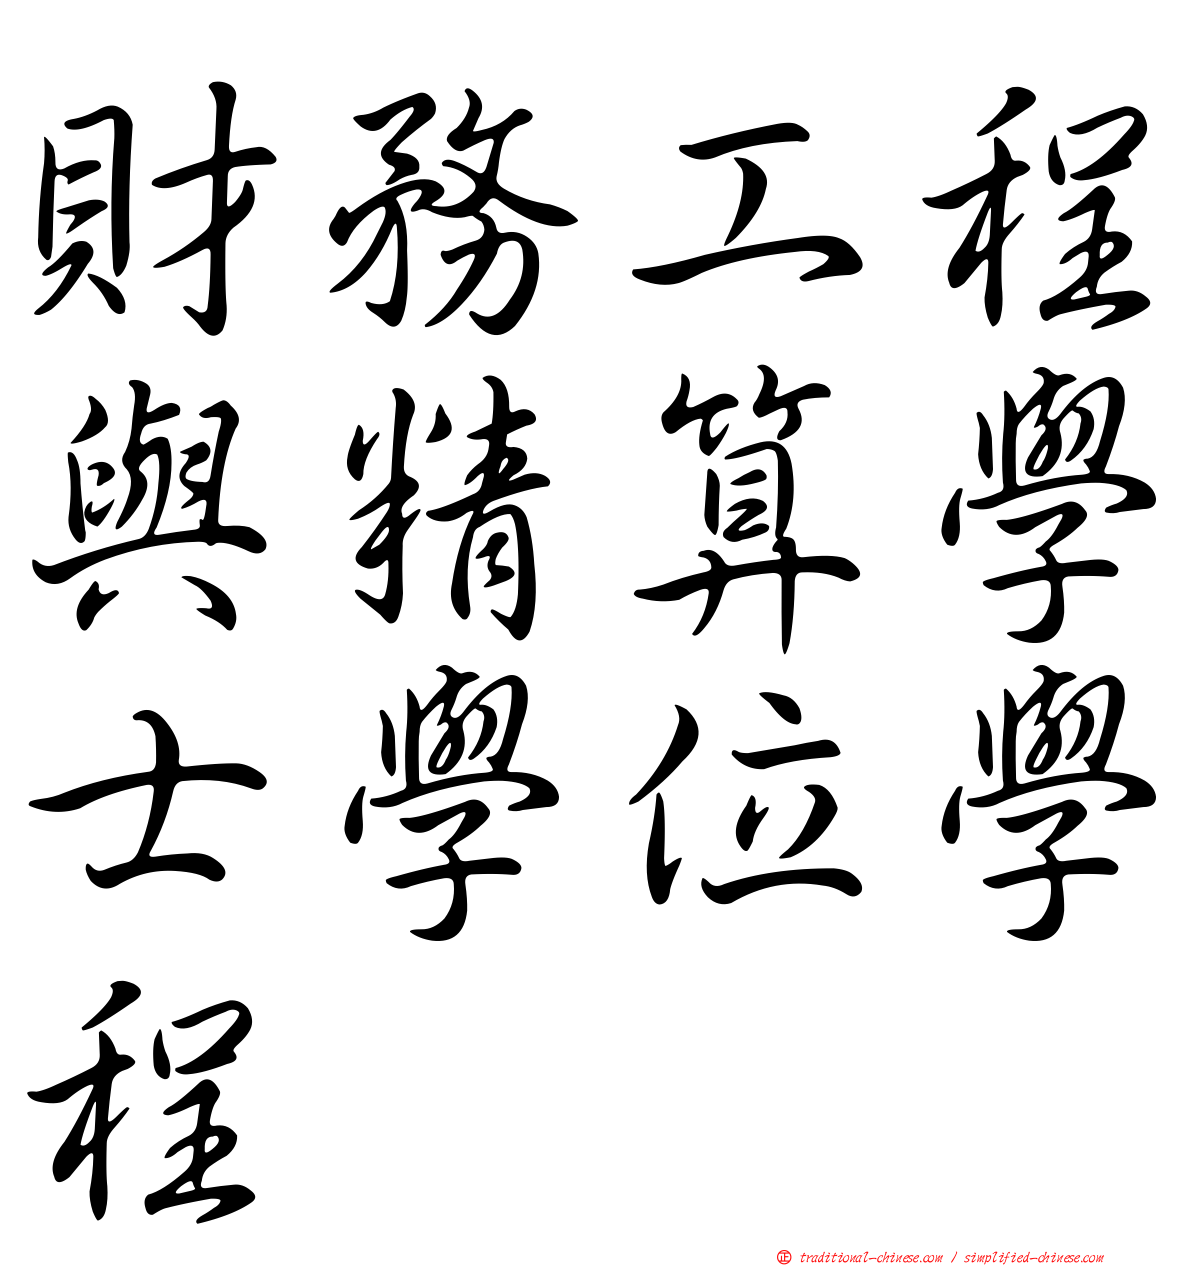 財務工程
與精算學
士學位學
程
正 traditional-chinese.com / simplified-chinese.com